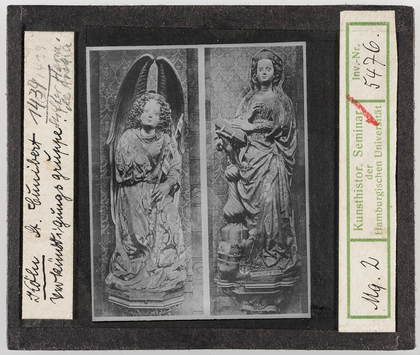 Köln St. Cunibert 1439
Verkündigungsgruppe
Kunsthistor. Seminar
der
Hamburgischen Universität
Inv.-Nr.
5476.
Mg. 2